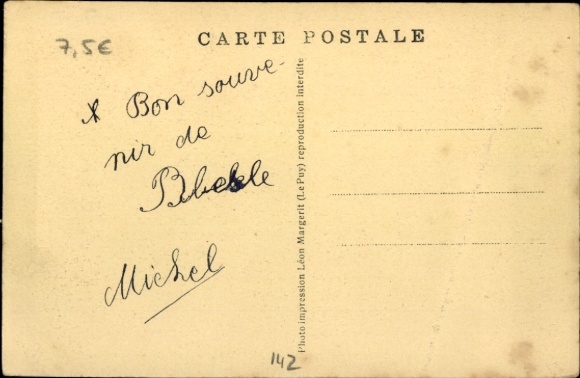 7,5€
CARTE POSTALE
Bon souve-
nir de
Michel
Photo impression Léon Margerit (Le Puy) reproduction interdite
142